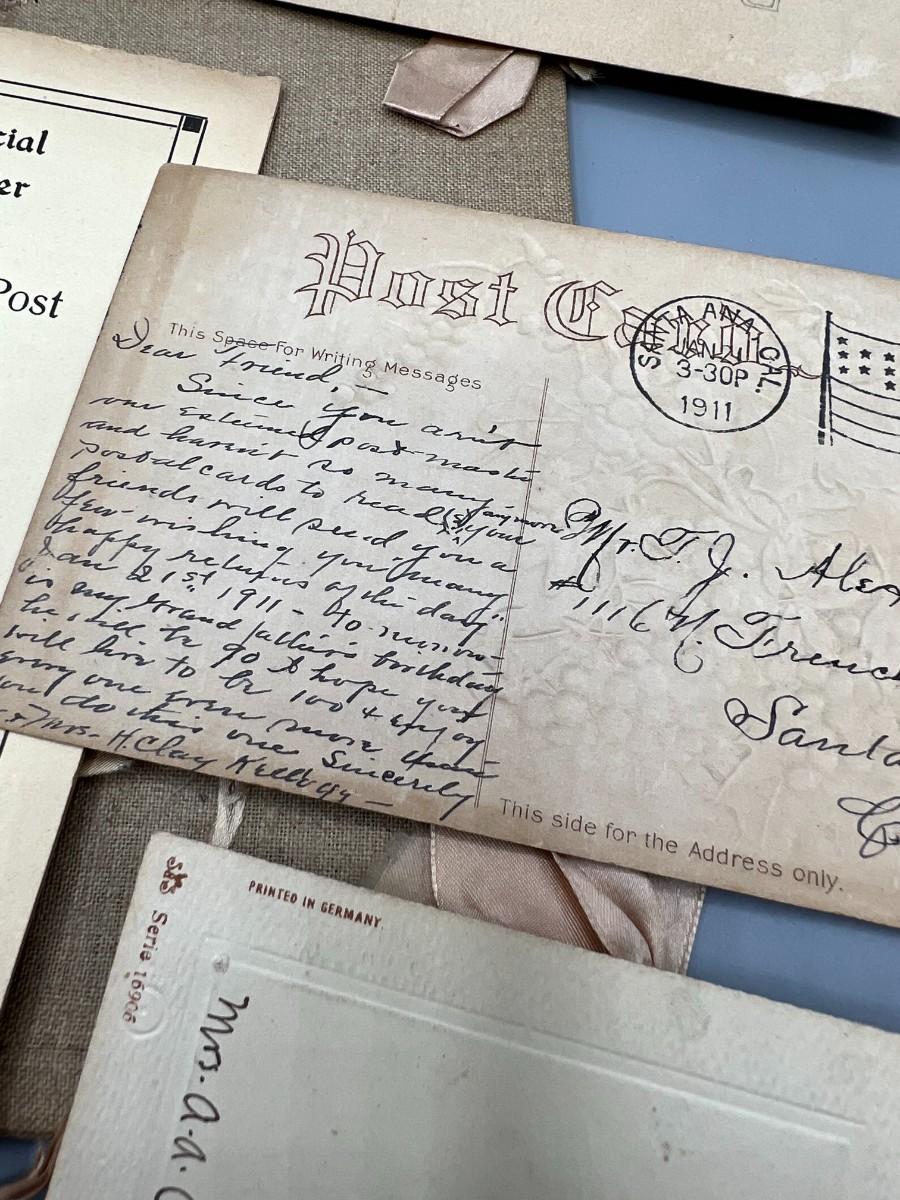 cial
er
Post
Post Card
This Space For Writing Messages
SANTA ANA CAL.
JAN
3-30P
1911
Dear friend, —
Since you arn't
our esteemed post-master
and havn't so many
postal cards to read, anymore
friends will send you a
few wishing you "many
happy returns of the day"
Jan 21st 1911 - to-morrow
is my Grand father's birthday
he 'ill be 90 I hope you
will live to be 100 & enjoy
every one even more than
you do this one Sincerely
Mrs. H. Clay Kellogg —
Mr. T. J. Alex
#1116 N. French
Santa
This side for the Address only.
PRINTED IN GERMANY.
Serie 16906
Mrs. A. A.